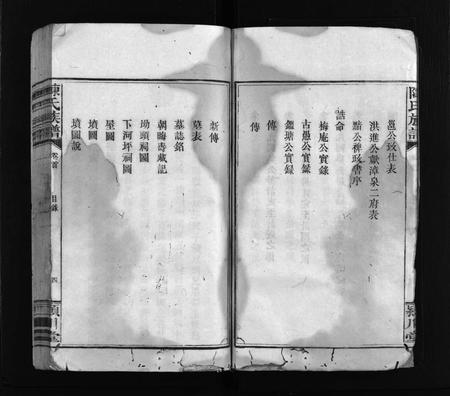 陳氏族譜
邕公致仕表
洪進公獻漳泉二府表
黯公裨政書序
誥命
梅庵公實錄
古愚公實錄
鑑塘公實錄
傳
傳
新傳
墓表
墓誌銘
朝晦壽藏記
坳頭祠圖
下河坪祠圖
屋圖
墳圖
墳圖說
陳氏族譜
卷首
目錄
四
潁川堂